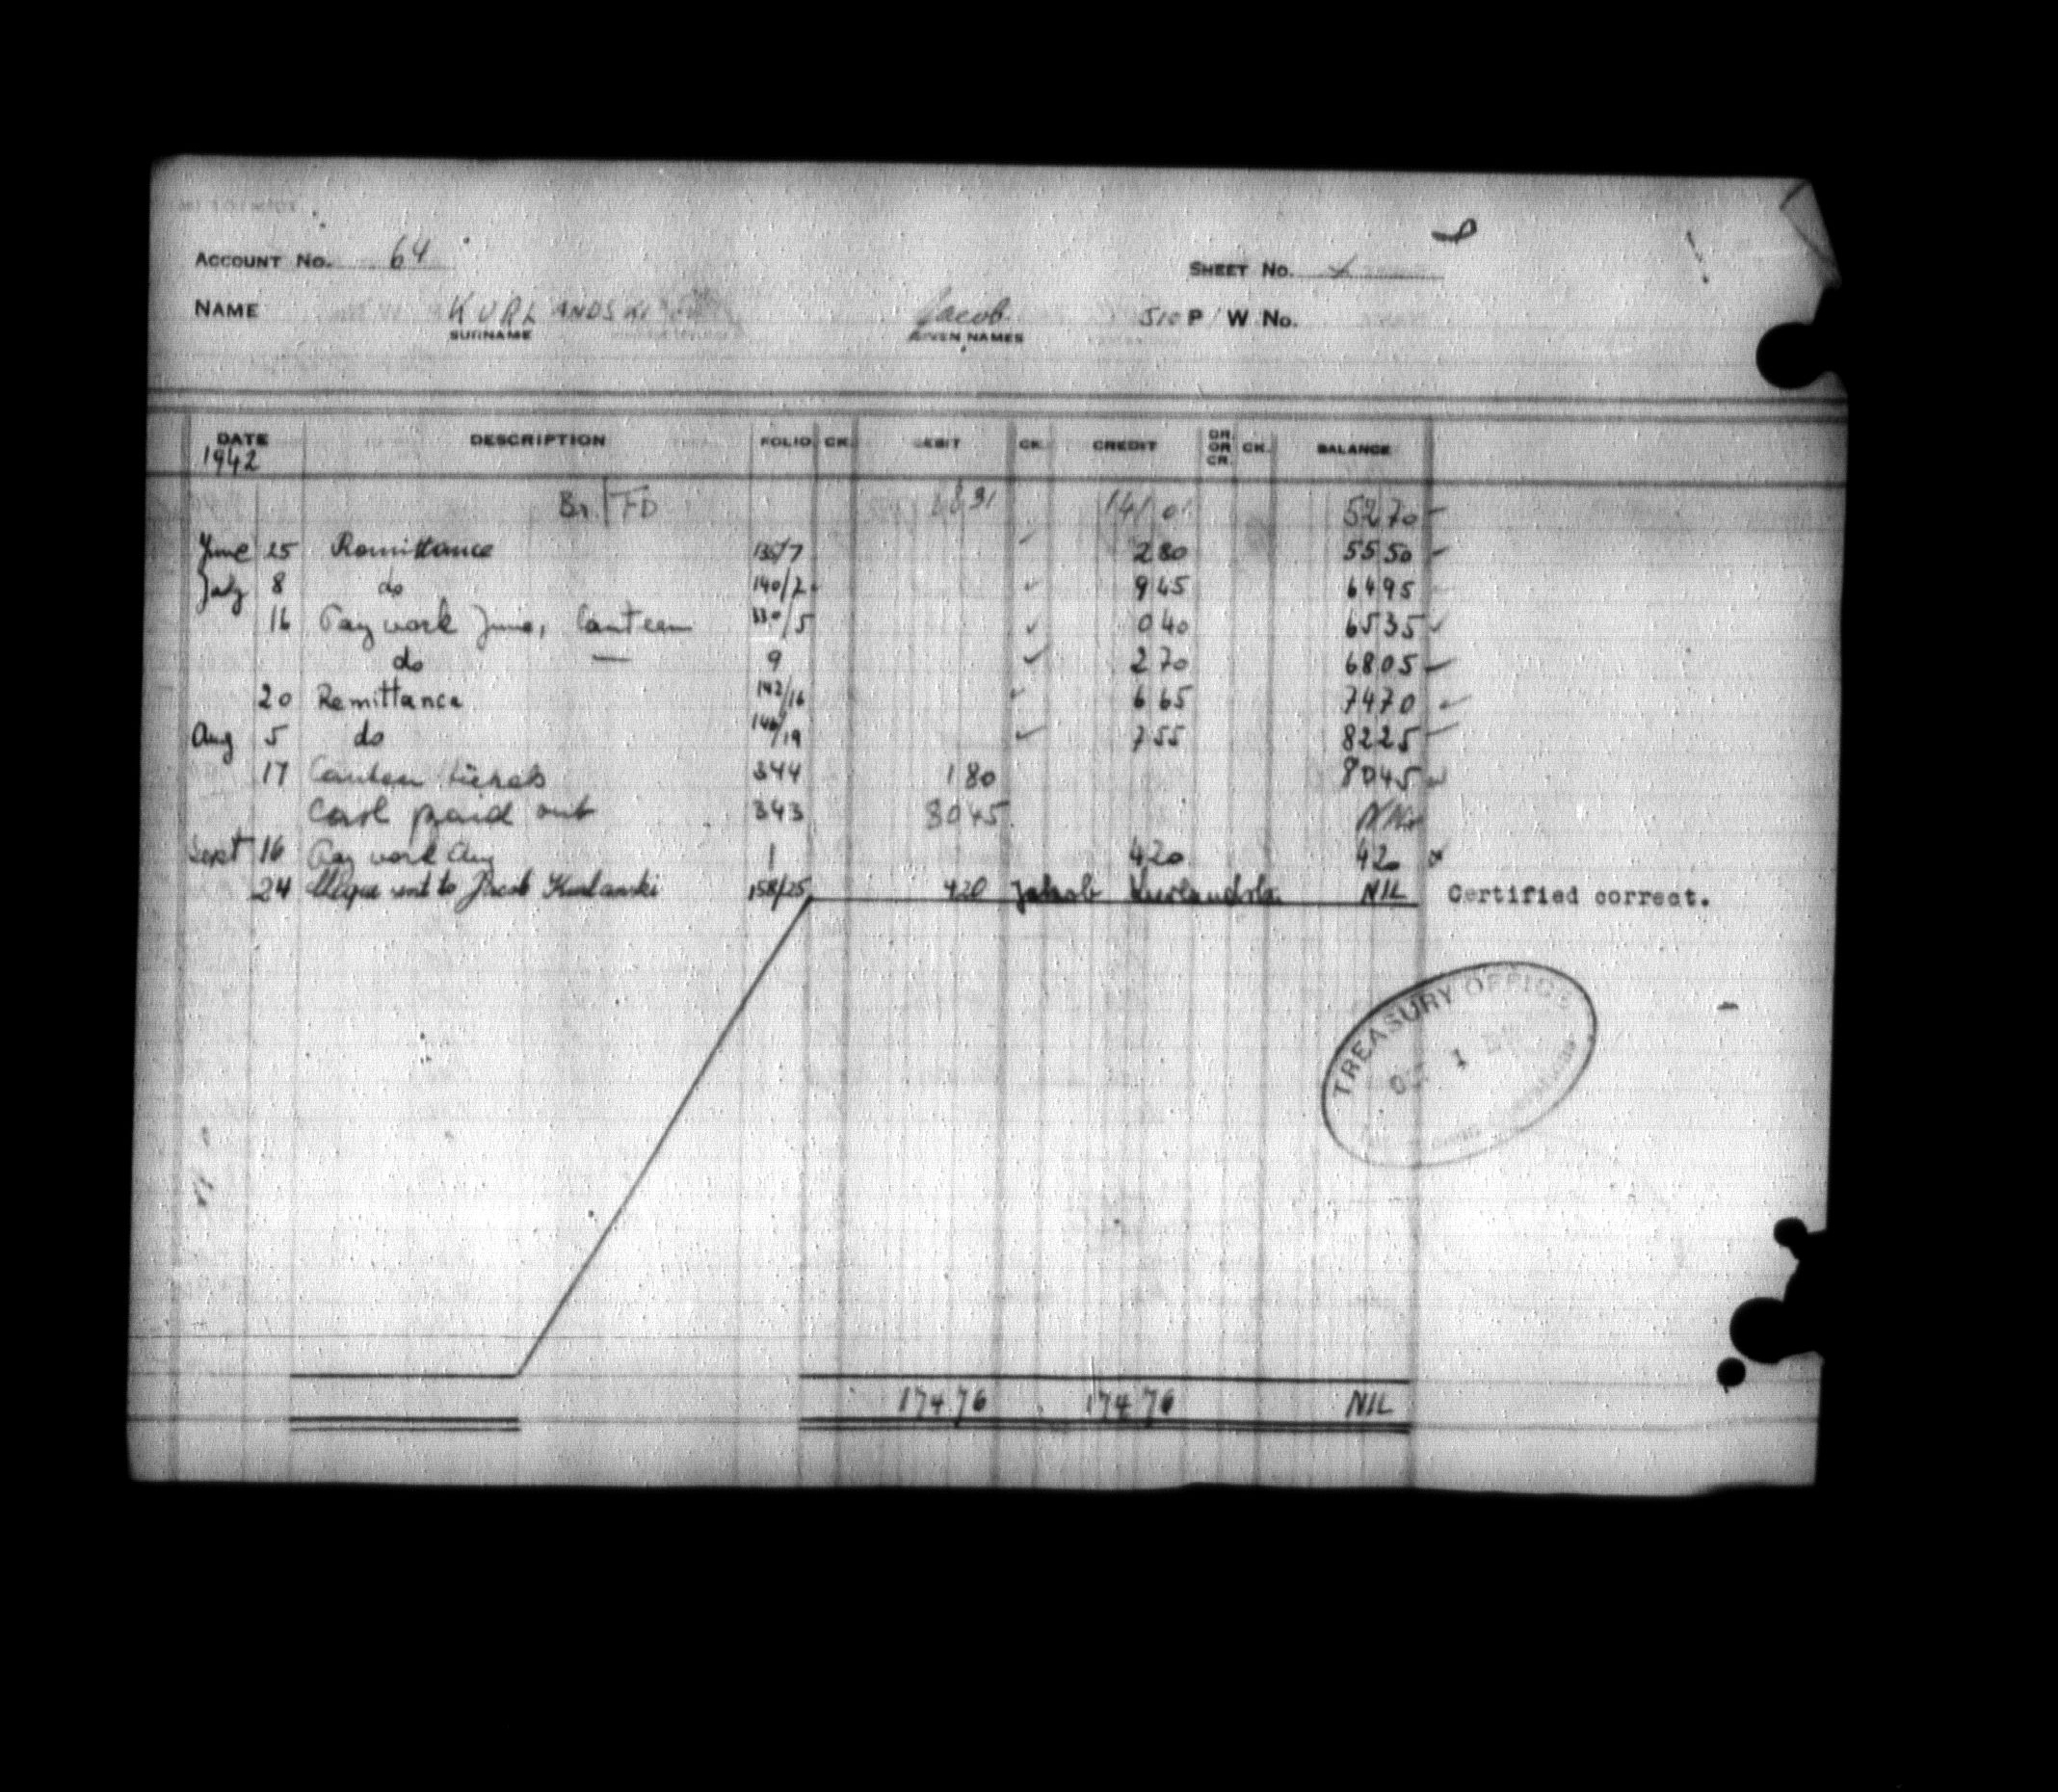 ACCOUNT NO. 64 SHEET NO.
NAME KURLANDSKI Jacob 510 P/W No.
SURNAME GIVEN NAMES
DATE DESCRIPTION FOLIO CK. DEBIT CK. CREDIT DR. OR CR. CK. BALANCE
1942
Br. FD 141 01 52 70
June 25 Remittance 135/7 2 80 55 50
July 8 do 140/2 9 45 64 95
16 Pay work June, Canteen 330/5 0 40 65 35
do — 9 2 70 68 05
20 Remittance 142/16 6 65 74 70
Aug 5 do 146/19 7 55 82 25
17 Canteen 344 1 80 80 45
Cash paid out 343 80 45 Nil
Sept 16 Pay work Aug 1 4 20 4 20
24 Cheque sent to Jacob Kurlanski 158/25 4 20 Jakob Kurlandski NIL Certified correct.
TREASURY OFFICE
OCT 1
174 76 174 76 NIL